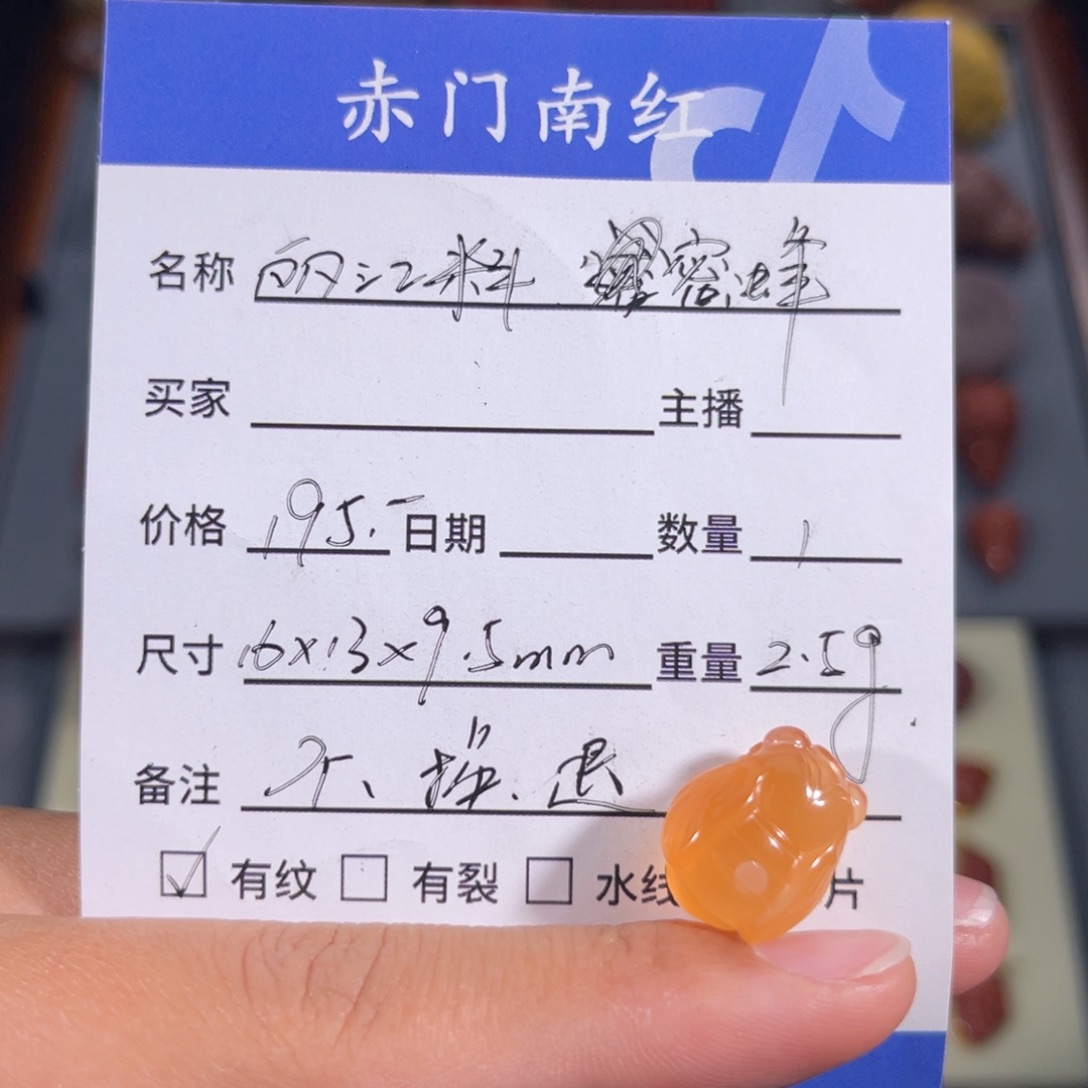 赤门南红
名称 丽江料 密蜂
买家 主播
价格 195.- 日期 数量 1
尺寸 16x13x9.5mm 重量 2.5g.
备注 不、换.退
☑ 有纹 □ 有裂 □ 水线 片